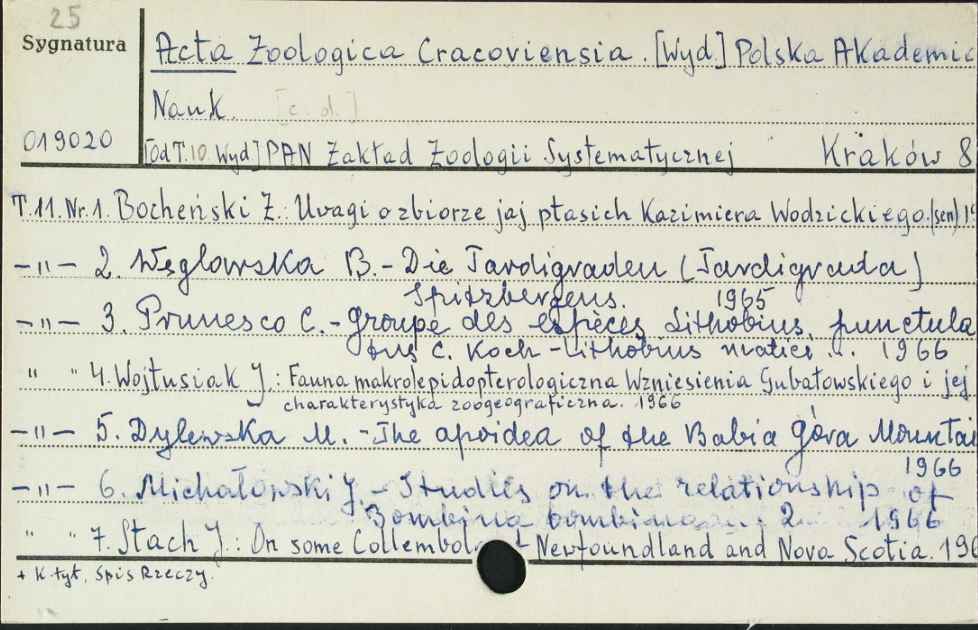 25
Sygnatura
Acta Zoologica Cracoviensia. [Wyd.] Polska Akademic
Nauk. [c. d.]
019020
[Od T.10. Wyd] PAN Zakład Zoologii Systematycznej Kraków 8
T.11. Nr.1. Bocheński Z.: Uwagi o zbiorze jaj ptasich Kazimiera Wodzickiego. (sen) 19
-"- 2. Węglarska B. - Die Tardigraden (Tardigrada)
Spitzbergens. 1965
-"- 3. Prunesco C. - Groupe des espèces Lithobius, punctula
tus C. Koch - Lithobius matici ... 1966
" " 4. Wojtusiak J.: Fauna makrolepidopterologiczna Wzniesienia Gubałowskiego i jej
charakterystyka zoogeograficzna. 1966
-"- 5. Dylewska M. - The apoidea of the Babia Góra Mountai
1966
-"- 6. Michałowski J. - Studies on the relationship of
Bombina bombina 2 1966
" " 7. Stach J.: On some Collembol Newfoundland and Nova Scotia. 196
+ K. tyt, Spis Rzeczy.